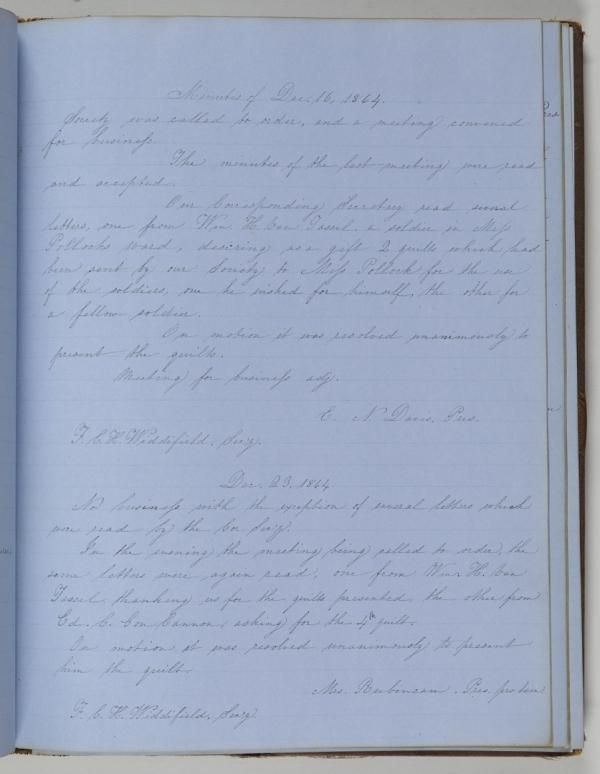 Minutes of Dec. 16, 1864.
Society was called to order, and a meeting convened
for business.
The minutes of the last meeting were read
and accepted.
Our Corresponding Secretary read several
letters, one from Wm. H. Van Tassel, a soldier in Miss
Pollocks ward, desiring as a gift 2 quilts which had
been sent by our Society to Miss Pollock for the use
of the soldiers, one he wished for himself, the other for
a fellow soldier.
On motion it was resolved unanimously to
present the quilts.
Meeting for business adj.
E. N. Davis, Pres.
F. C. H. Widdifield, Sec'y.
Dec. 23, 1864
No business with the exception of several letters which
were read by the Cor Sec'y.
In the evening the meeting being called to order, the
same letters were again read, one from Wm. H. Van
Tassel, thanking us for the quilts presented, the other from
Ed. C. Cannon, asking for the 4th quilt.
On motion it was resolved unanimously to present
him the quilt.
Mrs. Pres. pro tem
F. C. H. Widdifield, Sec'y.